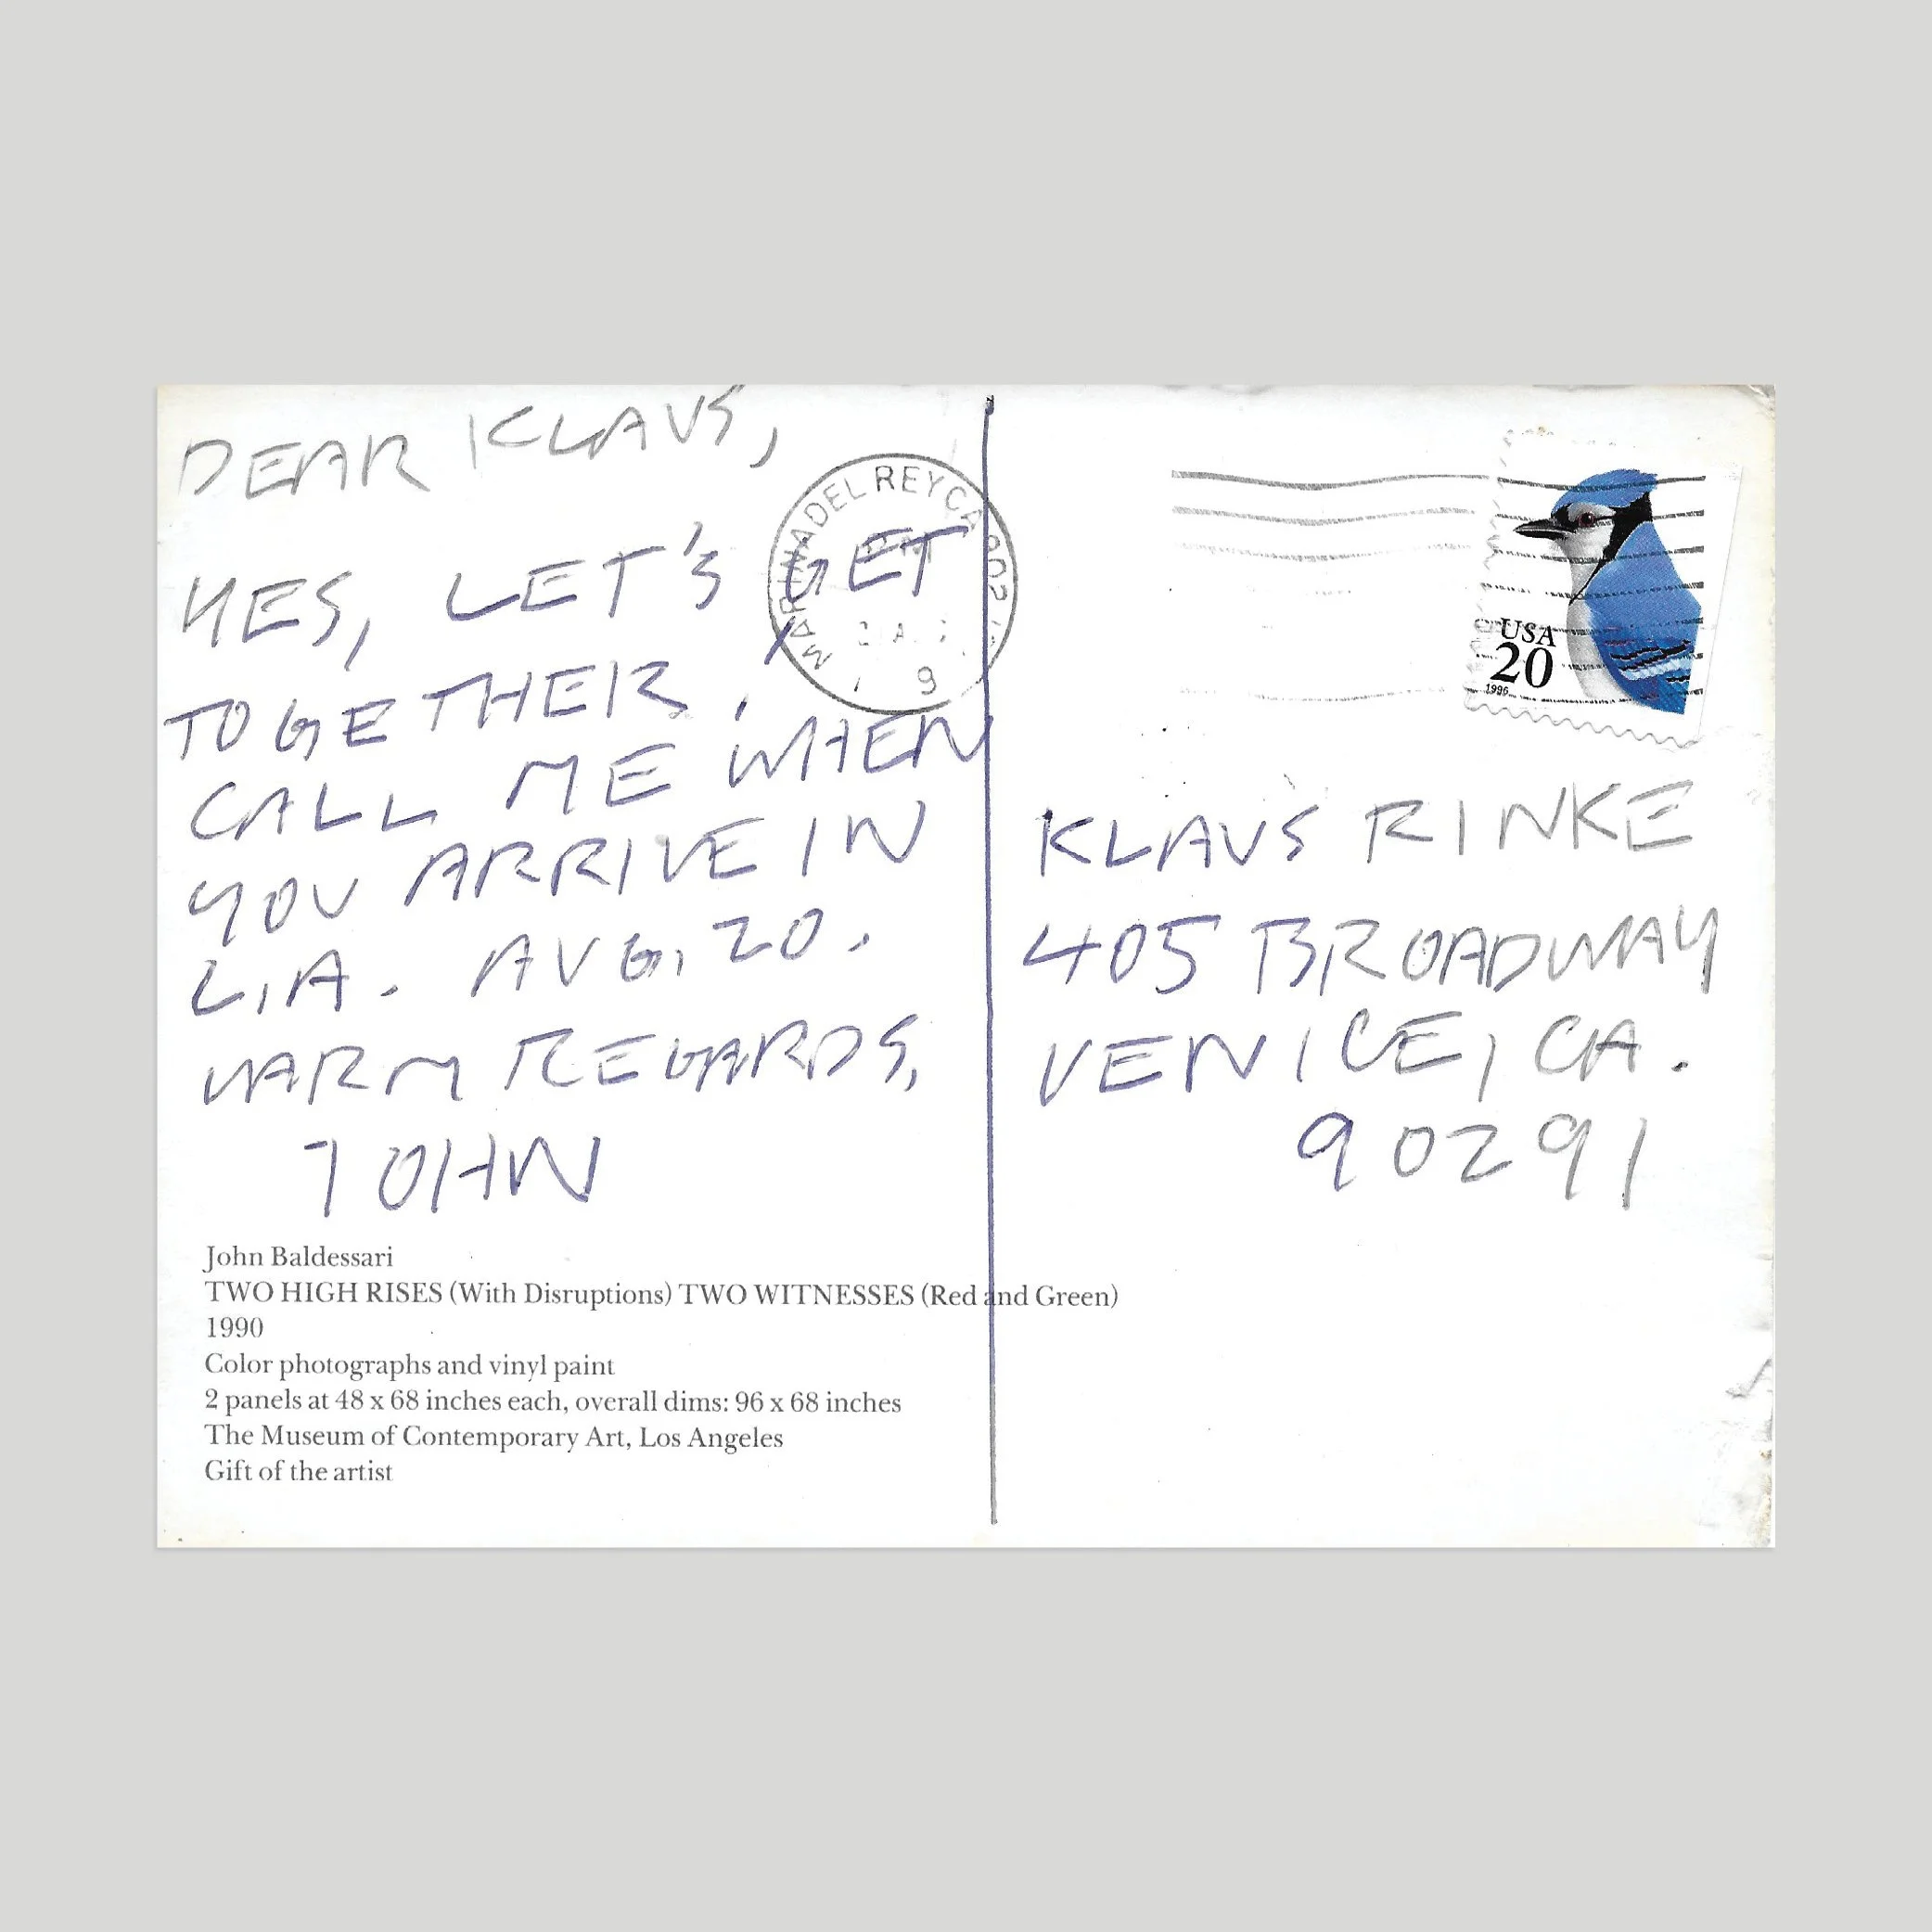 DEAR KLAUS,
YES, LET'S GET
TOGETHER.
CALL ME WHEN
YOU ARRIVE IN
L.A. AUG. 20.
WARM REGARDS,
JOHN
John Baldessari
TWO HIGH RISES (With Disruptions) TWO WITNESSES (Red and Green)
1990
Color photographs and vinyl paint
2 panels at 48 x 68 inches each, overall dims: 96 x 68 inches
The Museum of Contemporary Art, Los Angeles
Gift of the artist
MARINA DEL REY CA 902
PM
USA
20
1996
KLAUS RINKE
405 BROADWAY
VENICE, CA.
90291